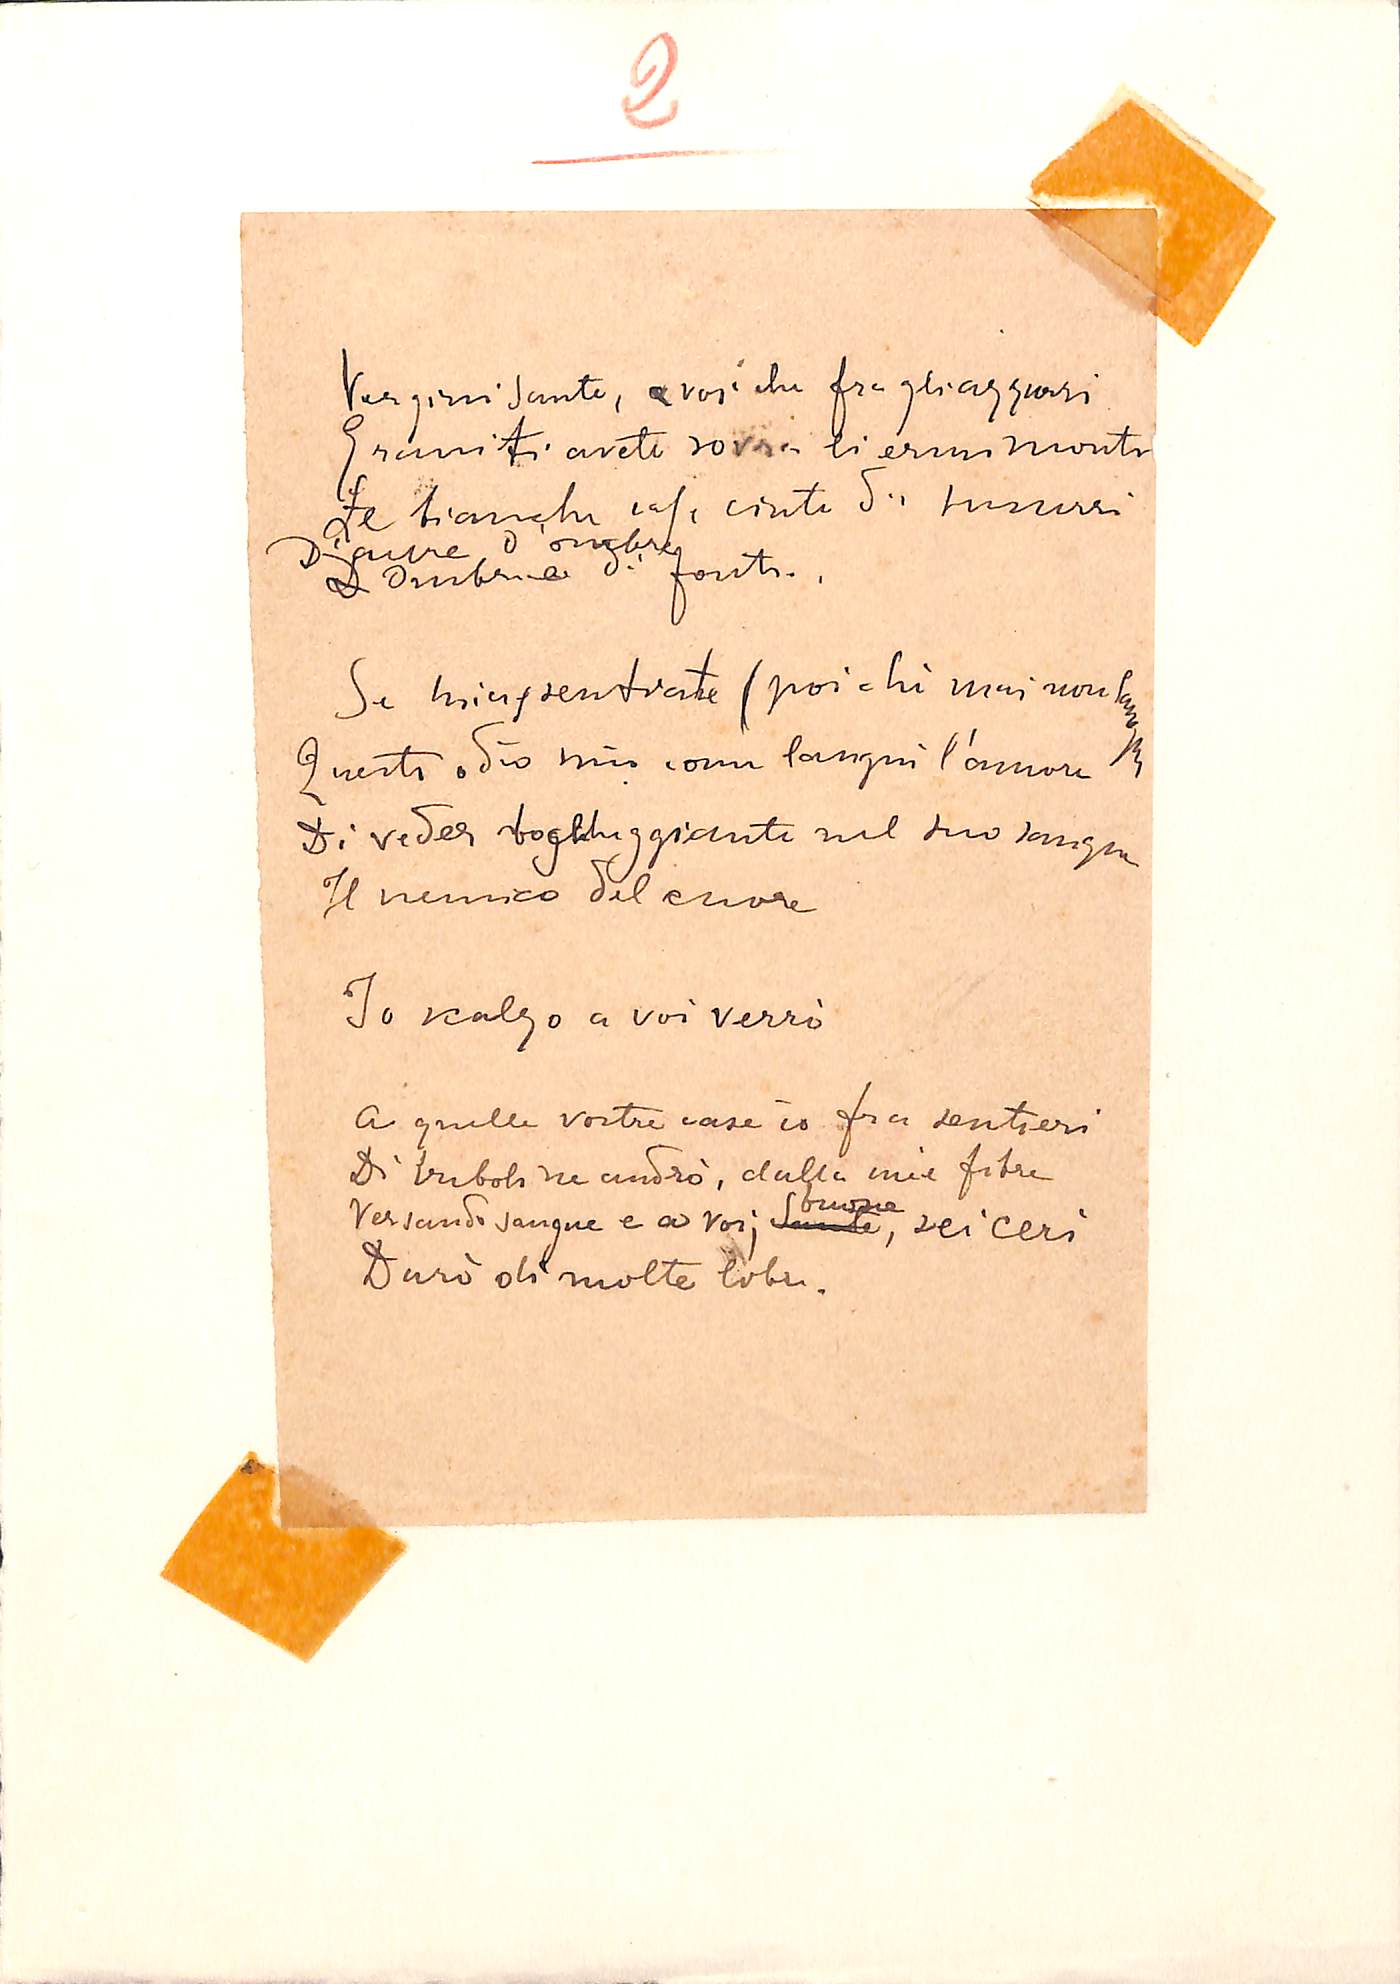 2
Vergini sante, o voi che fra gli azzurri
Graniti avete sovra li ermi monti
Le bianche case cinte di susurri
Di aure d'ombre
D'ombre e di fonti.
Se mi assentirate (poi chè mai non langue
Questo odio mio come languì l'amore)
Di veder boccheggiante nel suo sangue
Il nemico del cuore
Io scalzo a voi verrò
A quelle vostre case io fra sentieri
Di triboli ne andrò, dalle mie fibre
Versando sangue e a voi, sante, sei ceri
buone
Darò di molte libre.